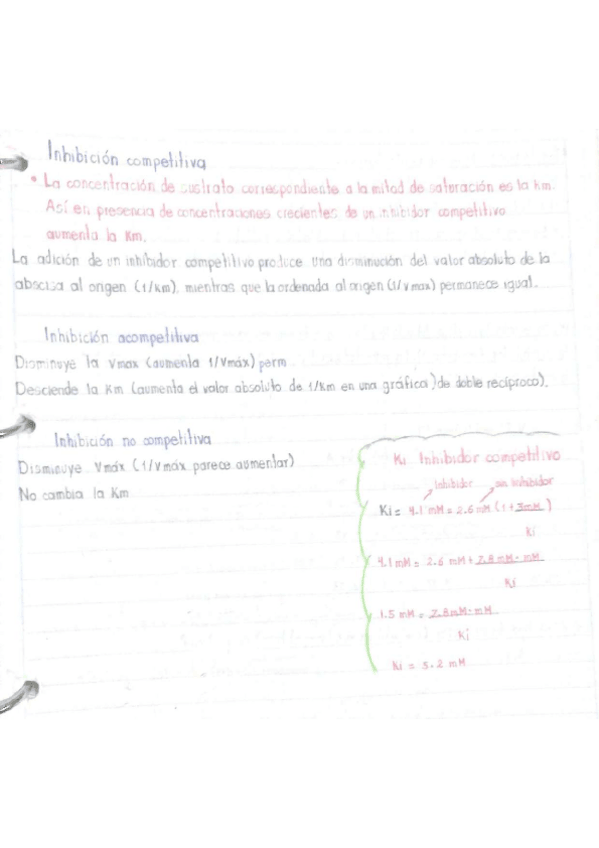 Inhibición competitiva
• La concentración de sustrato correspondiente a la mitad de saturación es la Km.
Así en presencia de concentraciones crecientes de un inhibidor competitivo
aumenta la Km.
La adición de un inhibidor competitivo produce una disminución del valor absoluto de la
abscisa al origen (1/Km), mientras que la ordenada al origen (1/Vmax) permanece igual.
Inhibición acompetitiva
Disminuye la Vmax (aumenta 1/Vmáx) perm
Desciende la Km (aumenta el valor absoluto de 1/Km en una gráfica) de doble recíproco).
Inhibición no competitiva
Disminuye Vmáx (1/Vmáx parece aumentar)
No cambia la Km
Ki Inhibidor competitivo
inhibidor sin inhibidor
Ki = 4.1 mM = 2.6 mM (1 + 3mM )
Ki
4.1 mM = 2.6 mM + 7.8 mM · mM
Ki
1.5 mM = 7.8 mM · mM
Ki
Ki = 5.2 mM